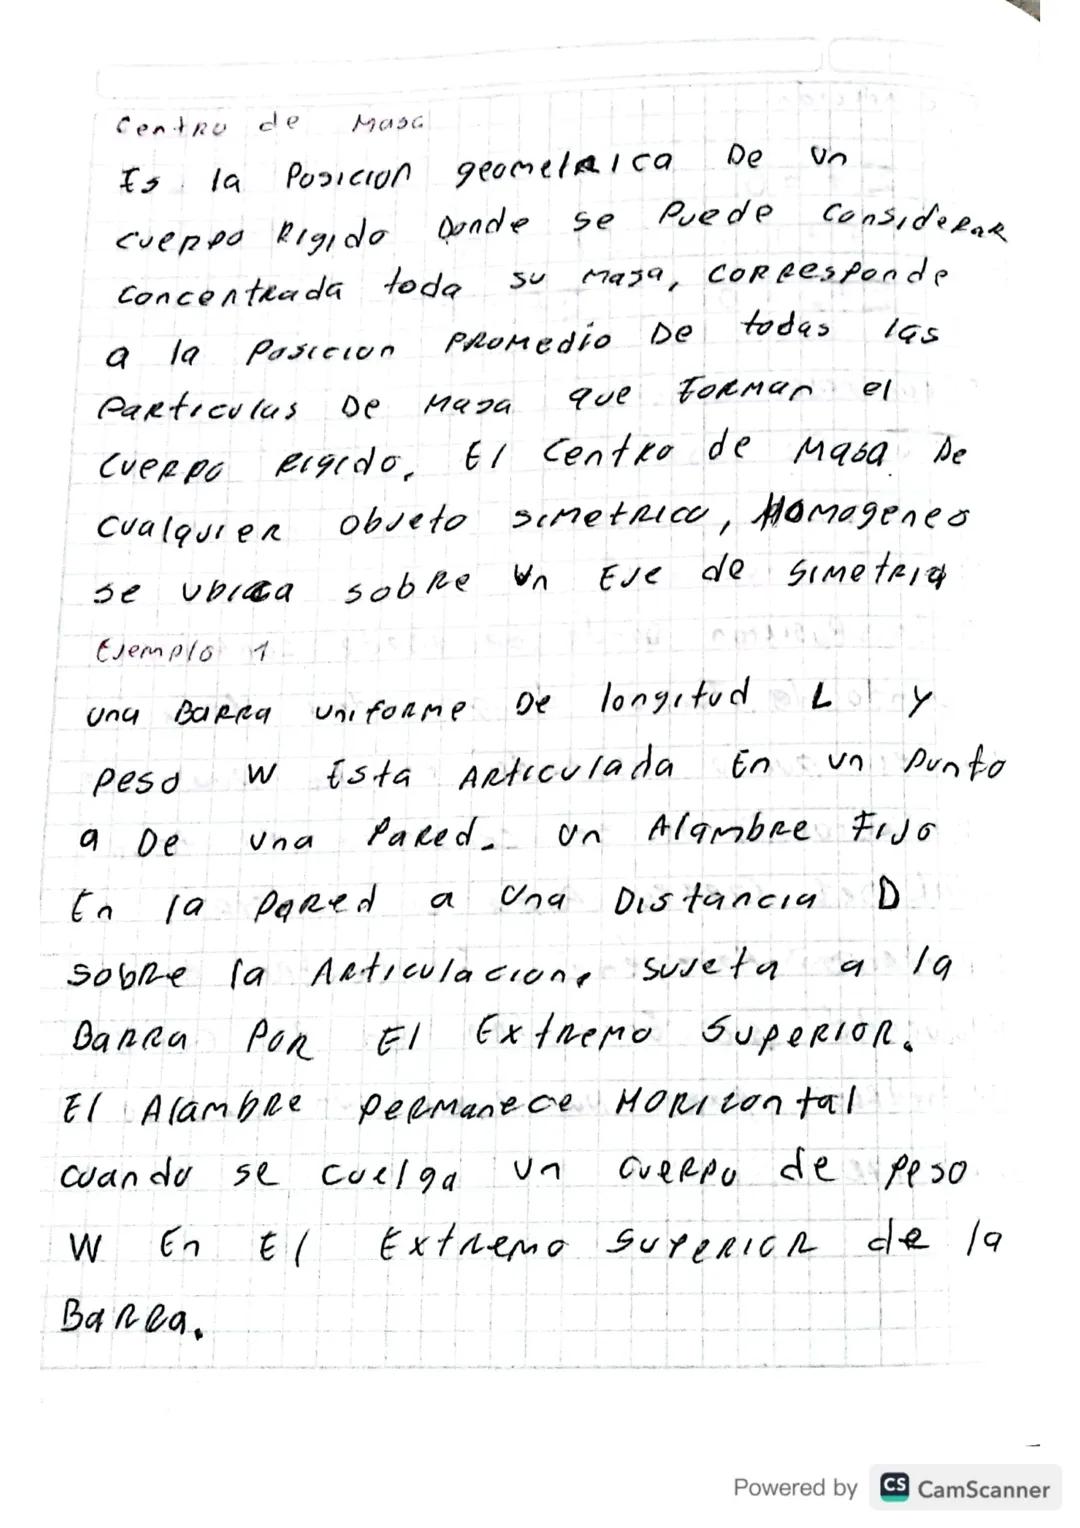 Centro de Masa
Es la Posicion geometrica De un
cuerpo Rigido Donde se Puede Considerar
concentrada toda su masa, corresponde
a la Posicion Promedio De todas las
Particulas De Masa que Forman el
Cuerpo Rigido. El Centro de Masa De
Cualquier objeto simetrico, Homogeneo
se ubica sobre un Eje de simetria
Ejemplo 1
Una Barra uniforme De longitud L y
Peso W Esta Articulada En un Punto
a De una Pared. un Alambre Fijo
En la Pared a una Distancia D
sobre la Articulacion, sujeta a la
Barra Por El Extremo Superior.
El Alambre permanece Horizontal
cuando se cuelga un cuerpo de peso
W En El Extremo Superior de la
Barra.
Powered by CS CamScanner